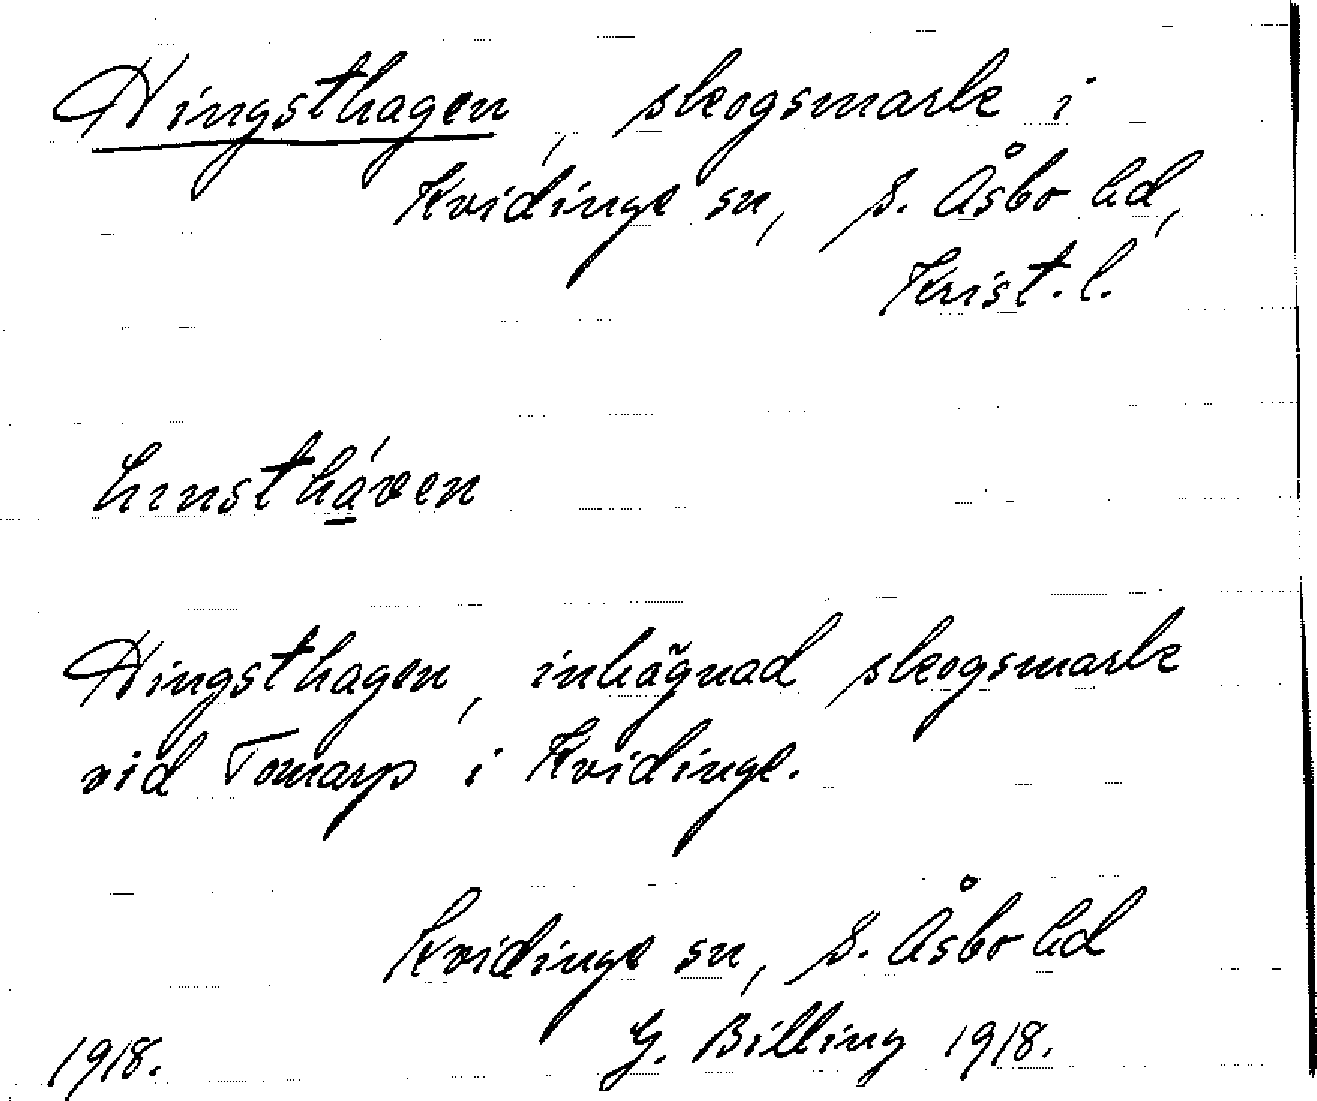 Hingsthagen, skogsmark i
Kvidinge sn, S. Åsbo hd,
Krist. l.
hınsthá̱ven
Hingsthagen, inhägnad skogsmark
vid Tomarp i Kvidinge.
Kvidinge sn, S. Åsbo hd
1918. G. Billing 1918.